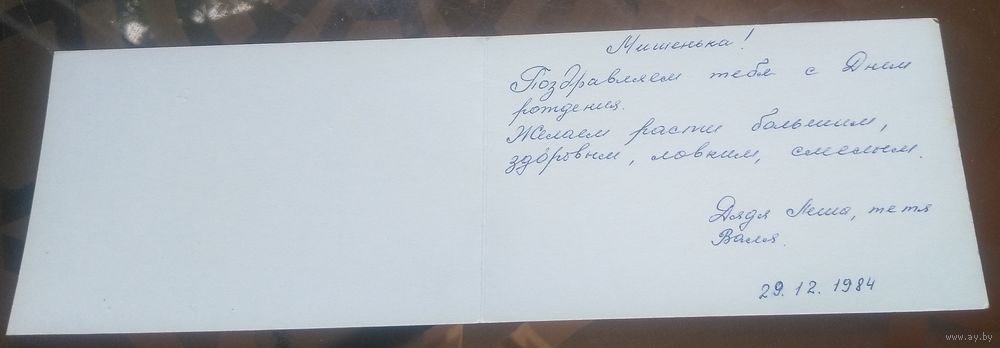 Мишенька!
Поздравляем тебя с Днем
рождения.
Желаем расти большим,
здоровым, ловким, смелым.
Дядя Леша, тетя
Валя.
29.12.1984
www.ay.by